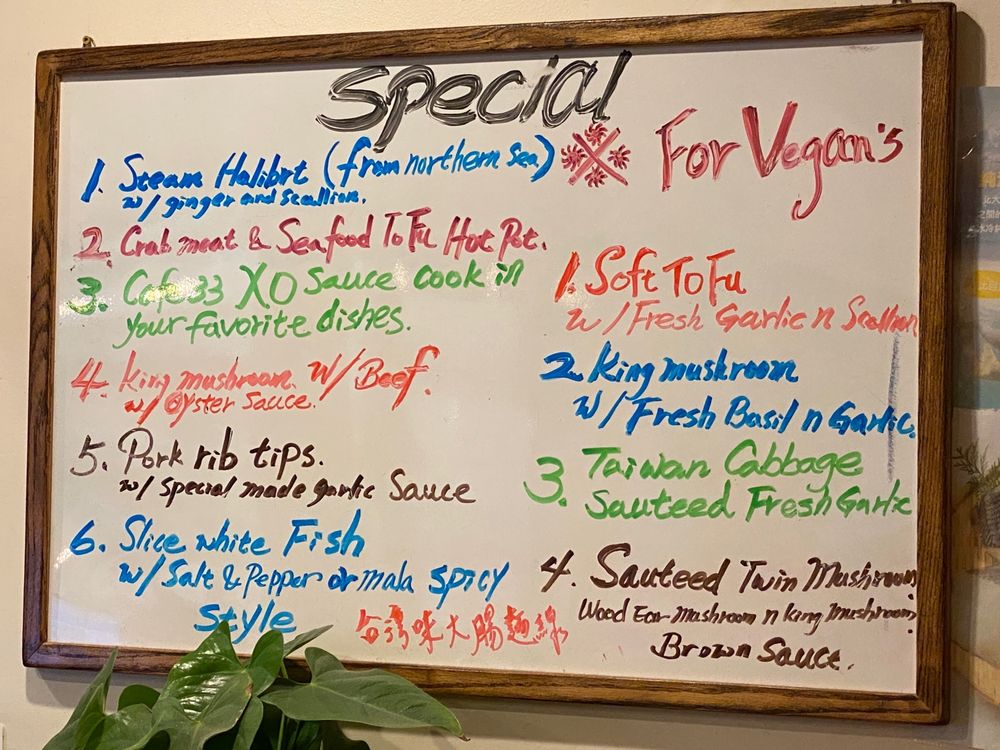 Special
1. Steam Halibrt (from northern Sea)
w/ ginger and Scallion.
2. Crab meat & Seafood ToFu Hot Pot.
3. Cafe33 XO Sauce cook in
your favorite dishes.
4. King mushroom. W/ Beef.
w/ Oyster Sauce.
5. Pork rib tips.
w/ Special made garlic Sauce
6. Slice white Fish
w/ Salt & Pepper or mala spicy
Style
台灣味大腸麵線
※ For Vegan's
1. Soft ToFu
w/ Fresh Garlic n Scallion
2. King mushroom
W/ Fresh Basil n Garlic.
3. Taiwan Cabbage
Sauteed Fresh Garlic
4. Sauteed Twin Mushroom
Wood Ear Mushroom n King Mushroom
Brown Sauce.